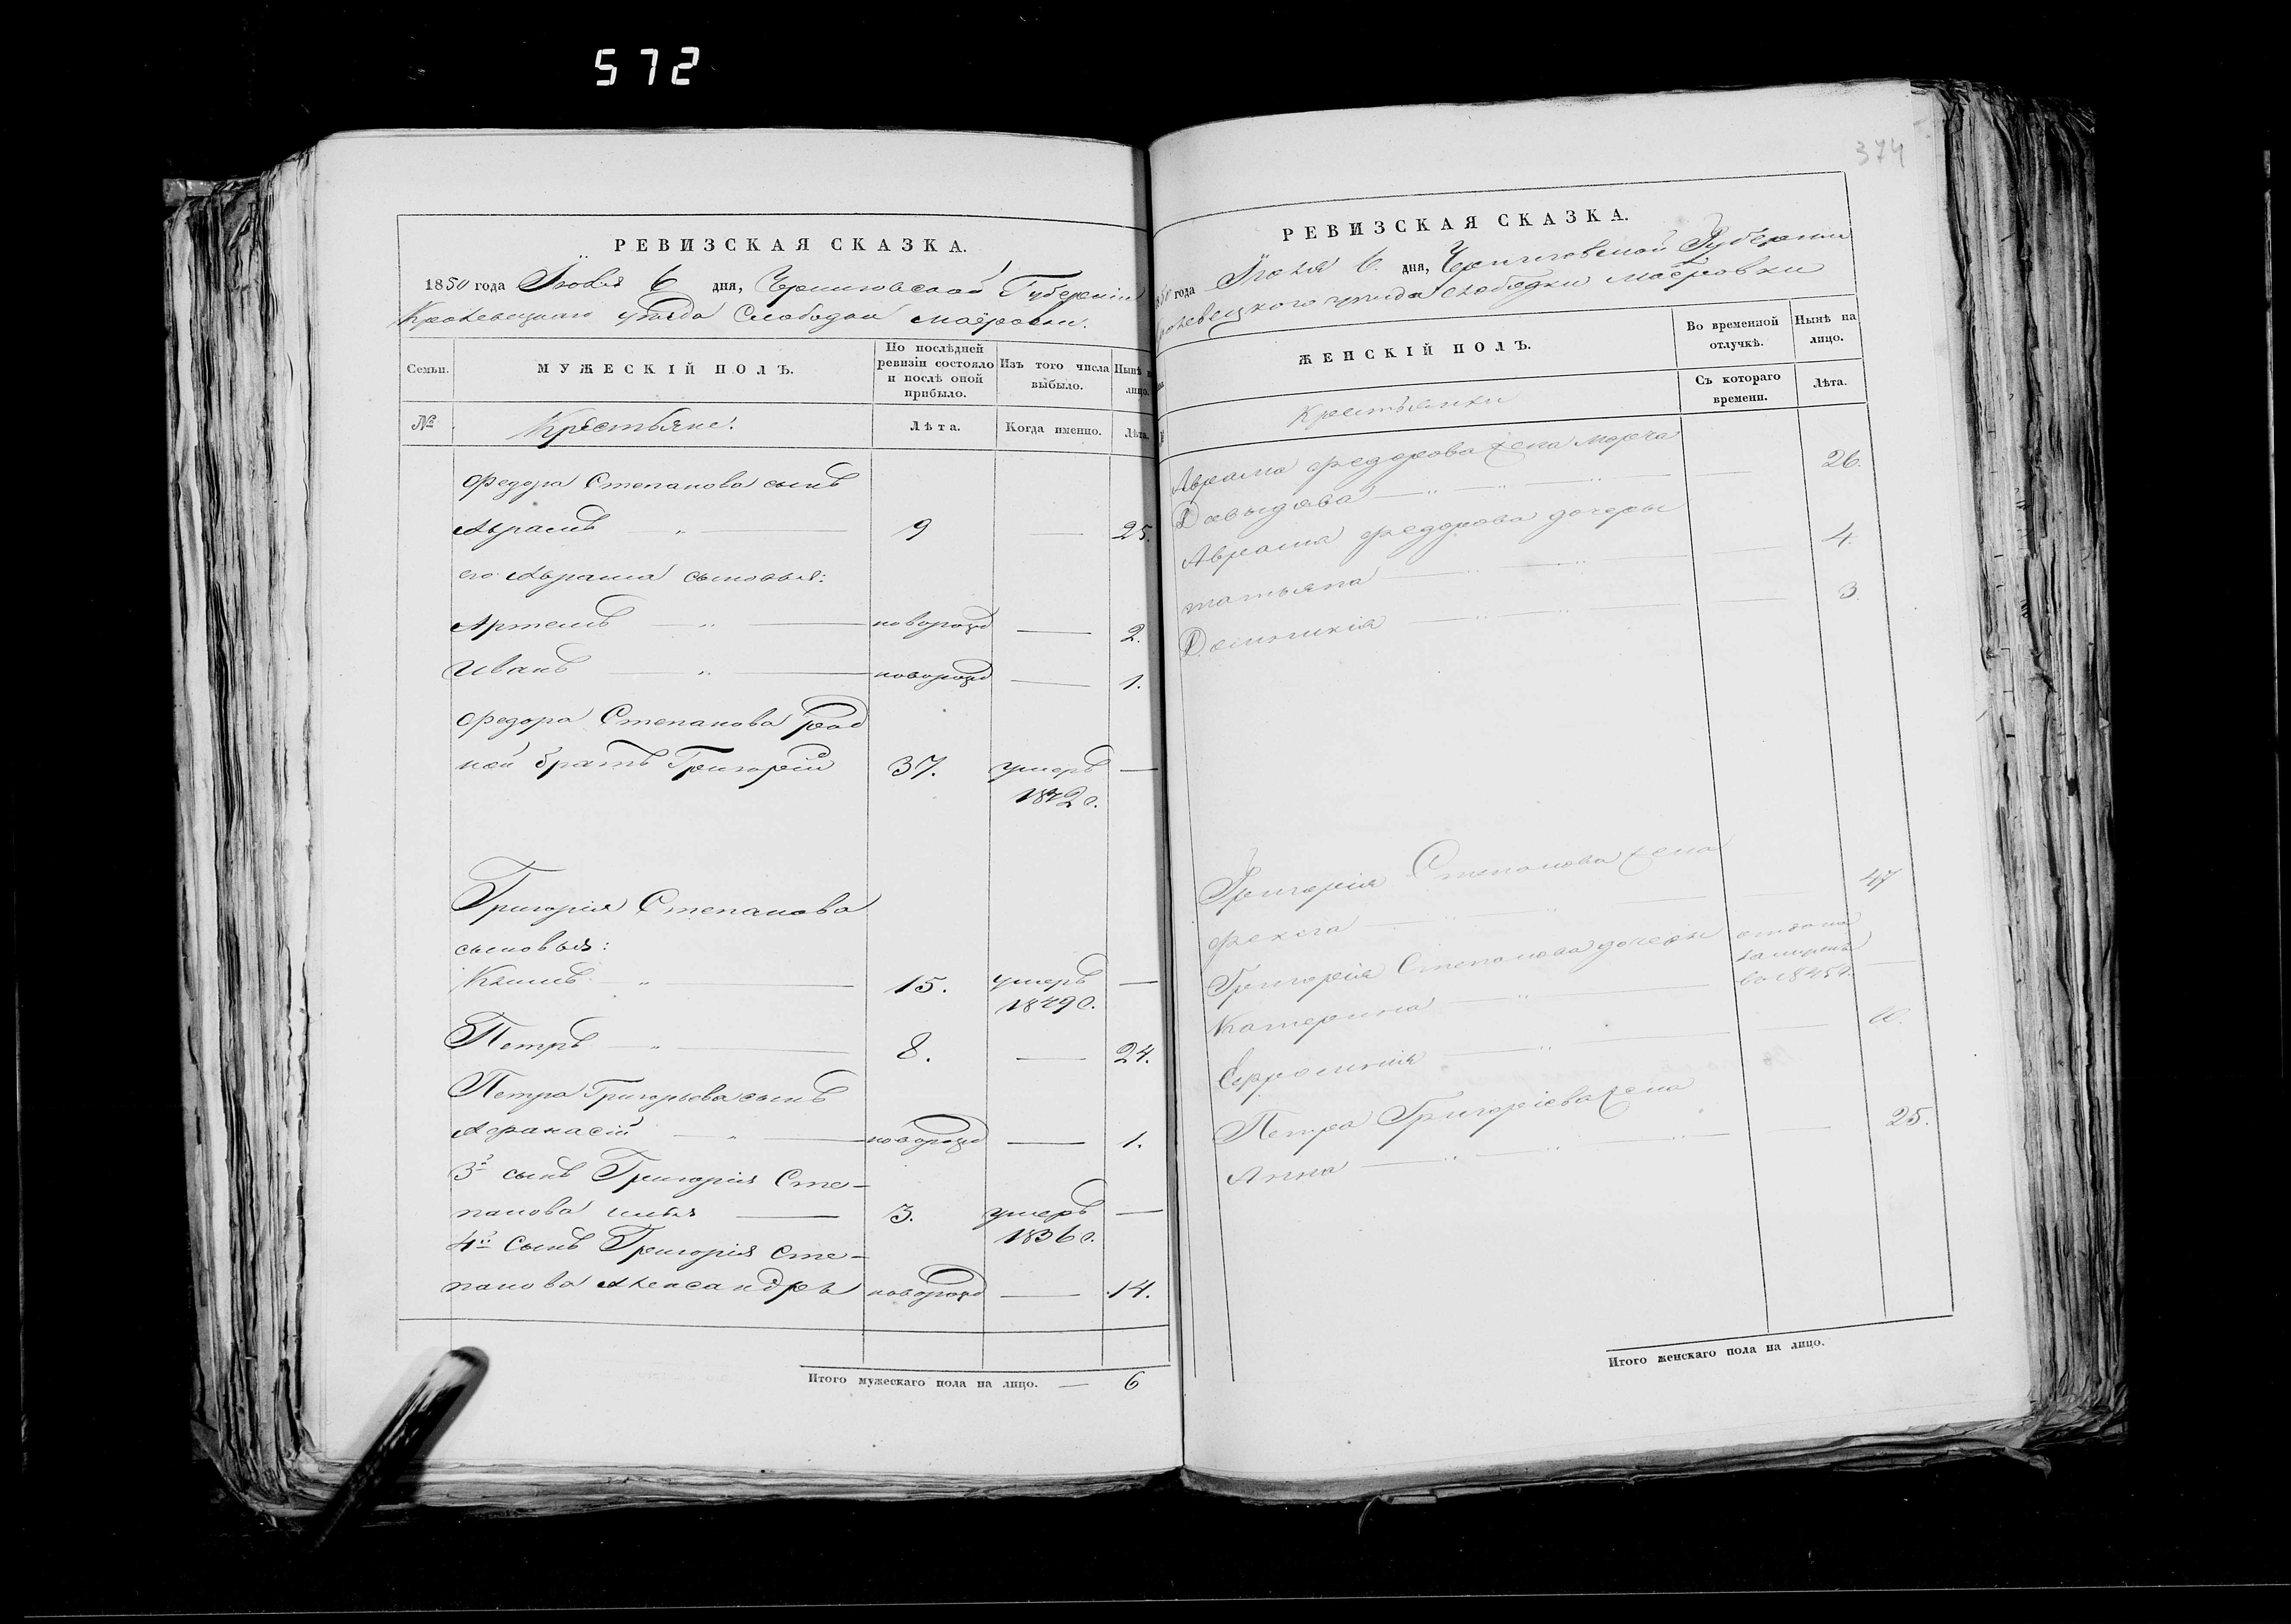 572
374
РЕВИЗСКАЯ СКАЗКА.
1850 года Июня 6 дня, Черниговской Губернии
Кролевецкаго уѣзда Слободки Маёровки.
Семьи.
МУЖЕСКІЙ ПОЛЪ.
По послѣдней ревизіи состояло и послѣ оной прибыло.
Изъ того числа выбыло.
Нынѣ на лицо.
№
Крестьяне.
Лѣта.
Когда именно.
Лѣта.
Федора Степанова сынъ
Абрамъ 9 — 25.
его Абрама сыновья:
Артемъ новорожд — 2.
Иванъ новорожд — 1.
Федора Степанова род
ной братъ Григорій 37. умеръ —
1842 г.
Григорія Степанова
сыновья:
Климъ 15. умеръ —
1849 г.
Петръ 8. — 24.
Петра Григорьева сынъ
Афанасій новорожд — 1.
3й сынъ Григорія Сте-
панова Илья 3. умеръ —
1836 г.
4й Сынъ Григорія Сте-
панова Александръ новорожд — 14.
Итого мужескаго пола на лицо. — 6
РЕВИЗСКАЯ СКАЗКА.
года Июня 6. дня, Черниговской Губернии
уѣзда слободки маёровки
ЖЕНСКІЙ ПОЛЪ.
Во временной отлучкѣ.
Нынѣ на лицо.
Съ котораго времени.
Лѣта.
Крестьянки
Аврама федорова жена Марфа
Давыдова — 26.
Аврама федорова дочери
татьяна — 4.
Домникія — 3.
Григорія Степанова жена
фекла — 47
Григорія Степанова дочери отдана
Катерина замужъ —
во 1845 г.
Ефросинія —
Петра Григоріева жена
Анна — 25.
Итого женскаго пола на лицо.